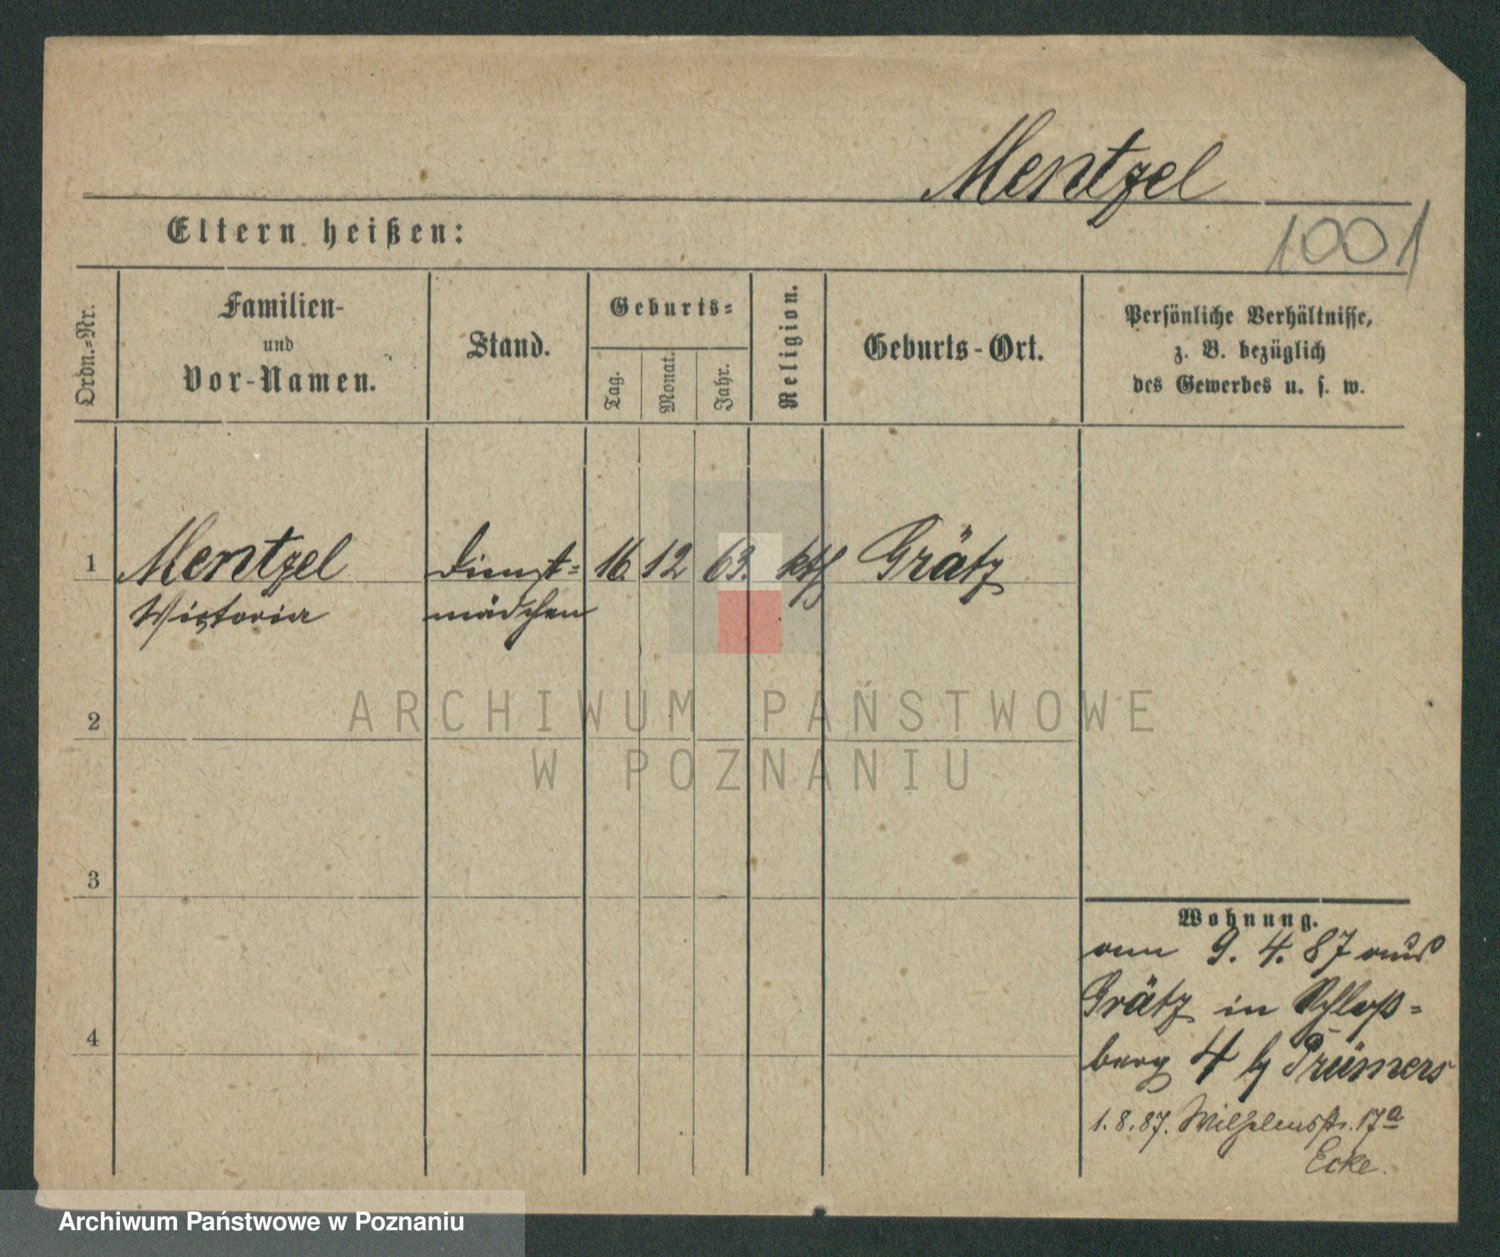 Mentzel
Eltern heißen:
1001
Ordn.-Nr.
Familien-
und
Vor-Namen.
Stand.
Geburts-
Tag.
Monat.
Jahr.
Religion.
Geburts-Ort.
Persönliche Verhältnisse,
z. B. bezüglich
des Gewerbes u. s. w.
1 Mentzel Dienst- 16. 12 63. kth Grätz
Victoria mädchen
2
3
4
Wohnung.
am 9. 4. 87 aus
Grätz in Schloß-
berg 4 b/ Prümers
1. 8. 87. Wilhelmsstr. 17a
Ecke.
ARCHIWUM PAŃSTWOWE
W POZNANIU
Archiwum Państwowe w Poznaniu